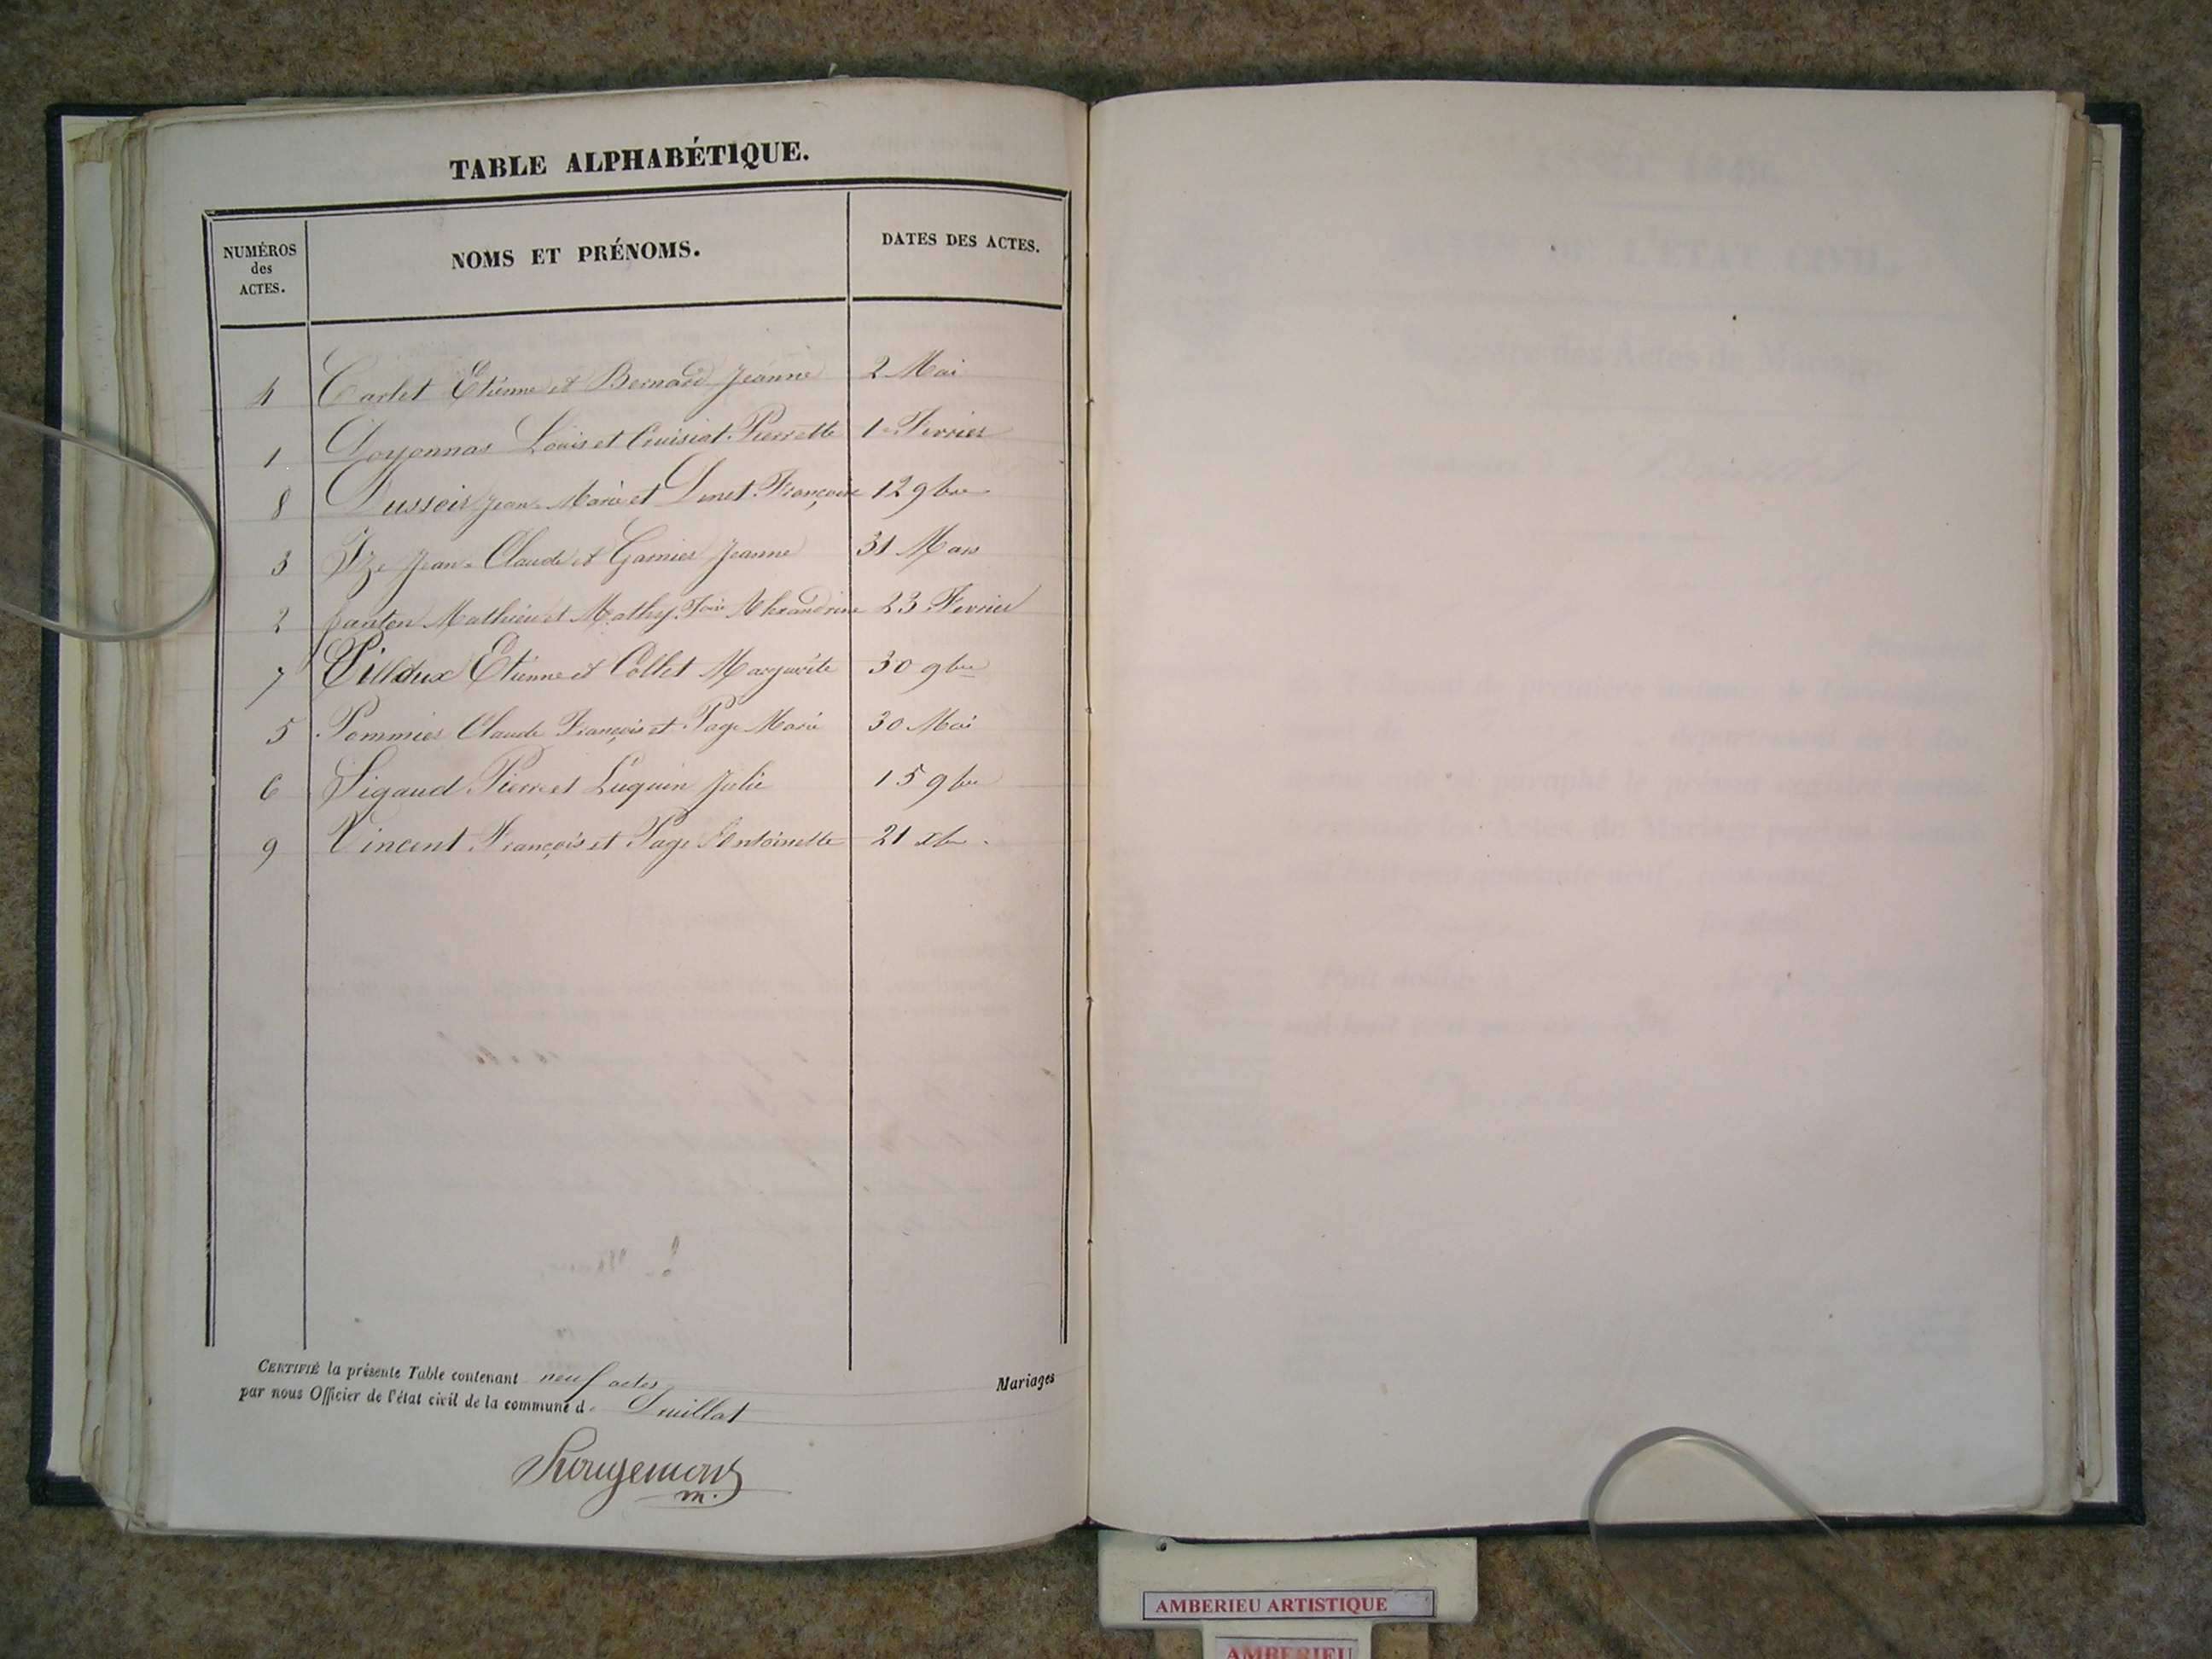 TABLE ALPHABÉTIQUE.
NUMÉROS
des
ACTES.
NOMS ET PRÉNOMS.
DATES DES ACTES.
4 Carlet Etienne et Bernard Jeanne 2 Mai
1 Doyonnas Louis et Cruisiat Pierrette 1 Fevrier
8 Jean-Marie et Françoise 12 9bre
3 Jean-Claude et Garnier Jeanne 31 Mars
2 Panton Mathieu et Mathy Alexandrine 23 Fevrier
7 Pilloux Etienne et Collet Marguerite 30 9bre
5 Pommier Claude François et Page Marie 30 Mai
6 Sigaud Pierre et Luquin Julie 15 9bre
9 Vincent François et Page Antoinette 21 xbre
CERTIFIÉ la présente Table contenant neuf actes
par nous Officier de l'état civil de la commune d. Druillat
Mariages
Rougemont
m.
L'ÉTAT CIVIL.
AMBERIEU ARTISTIQUE
AMBERIEU